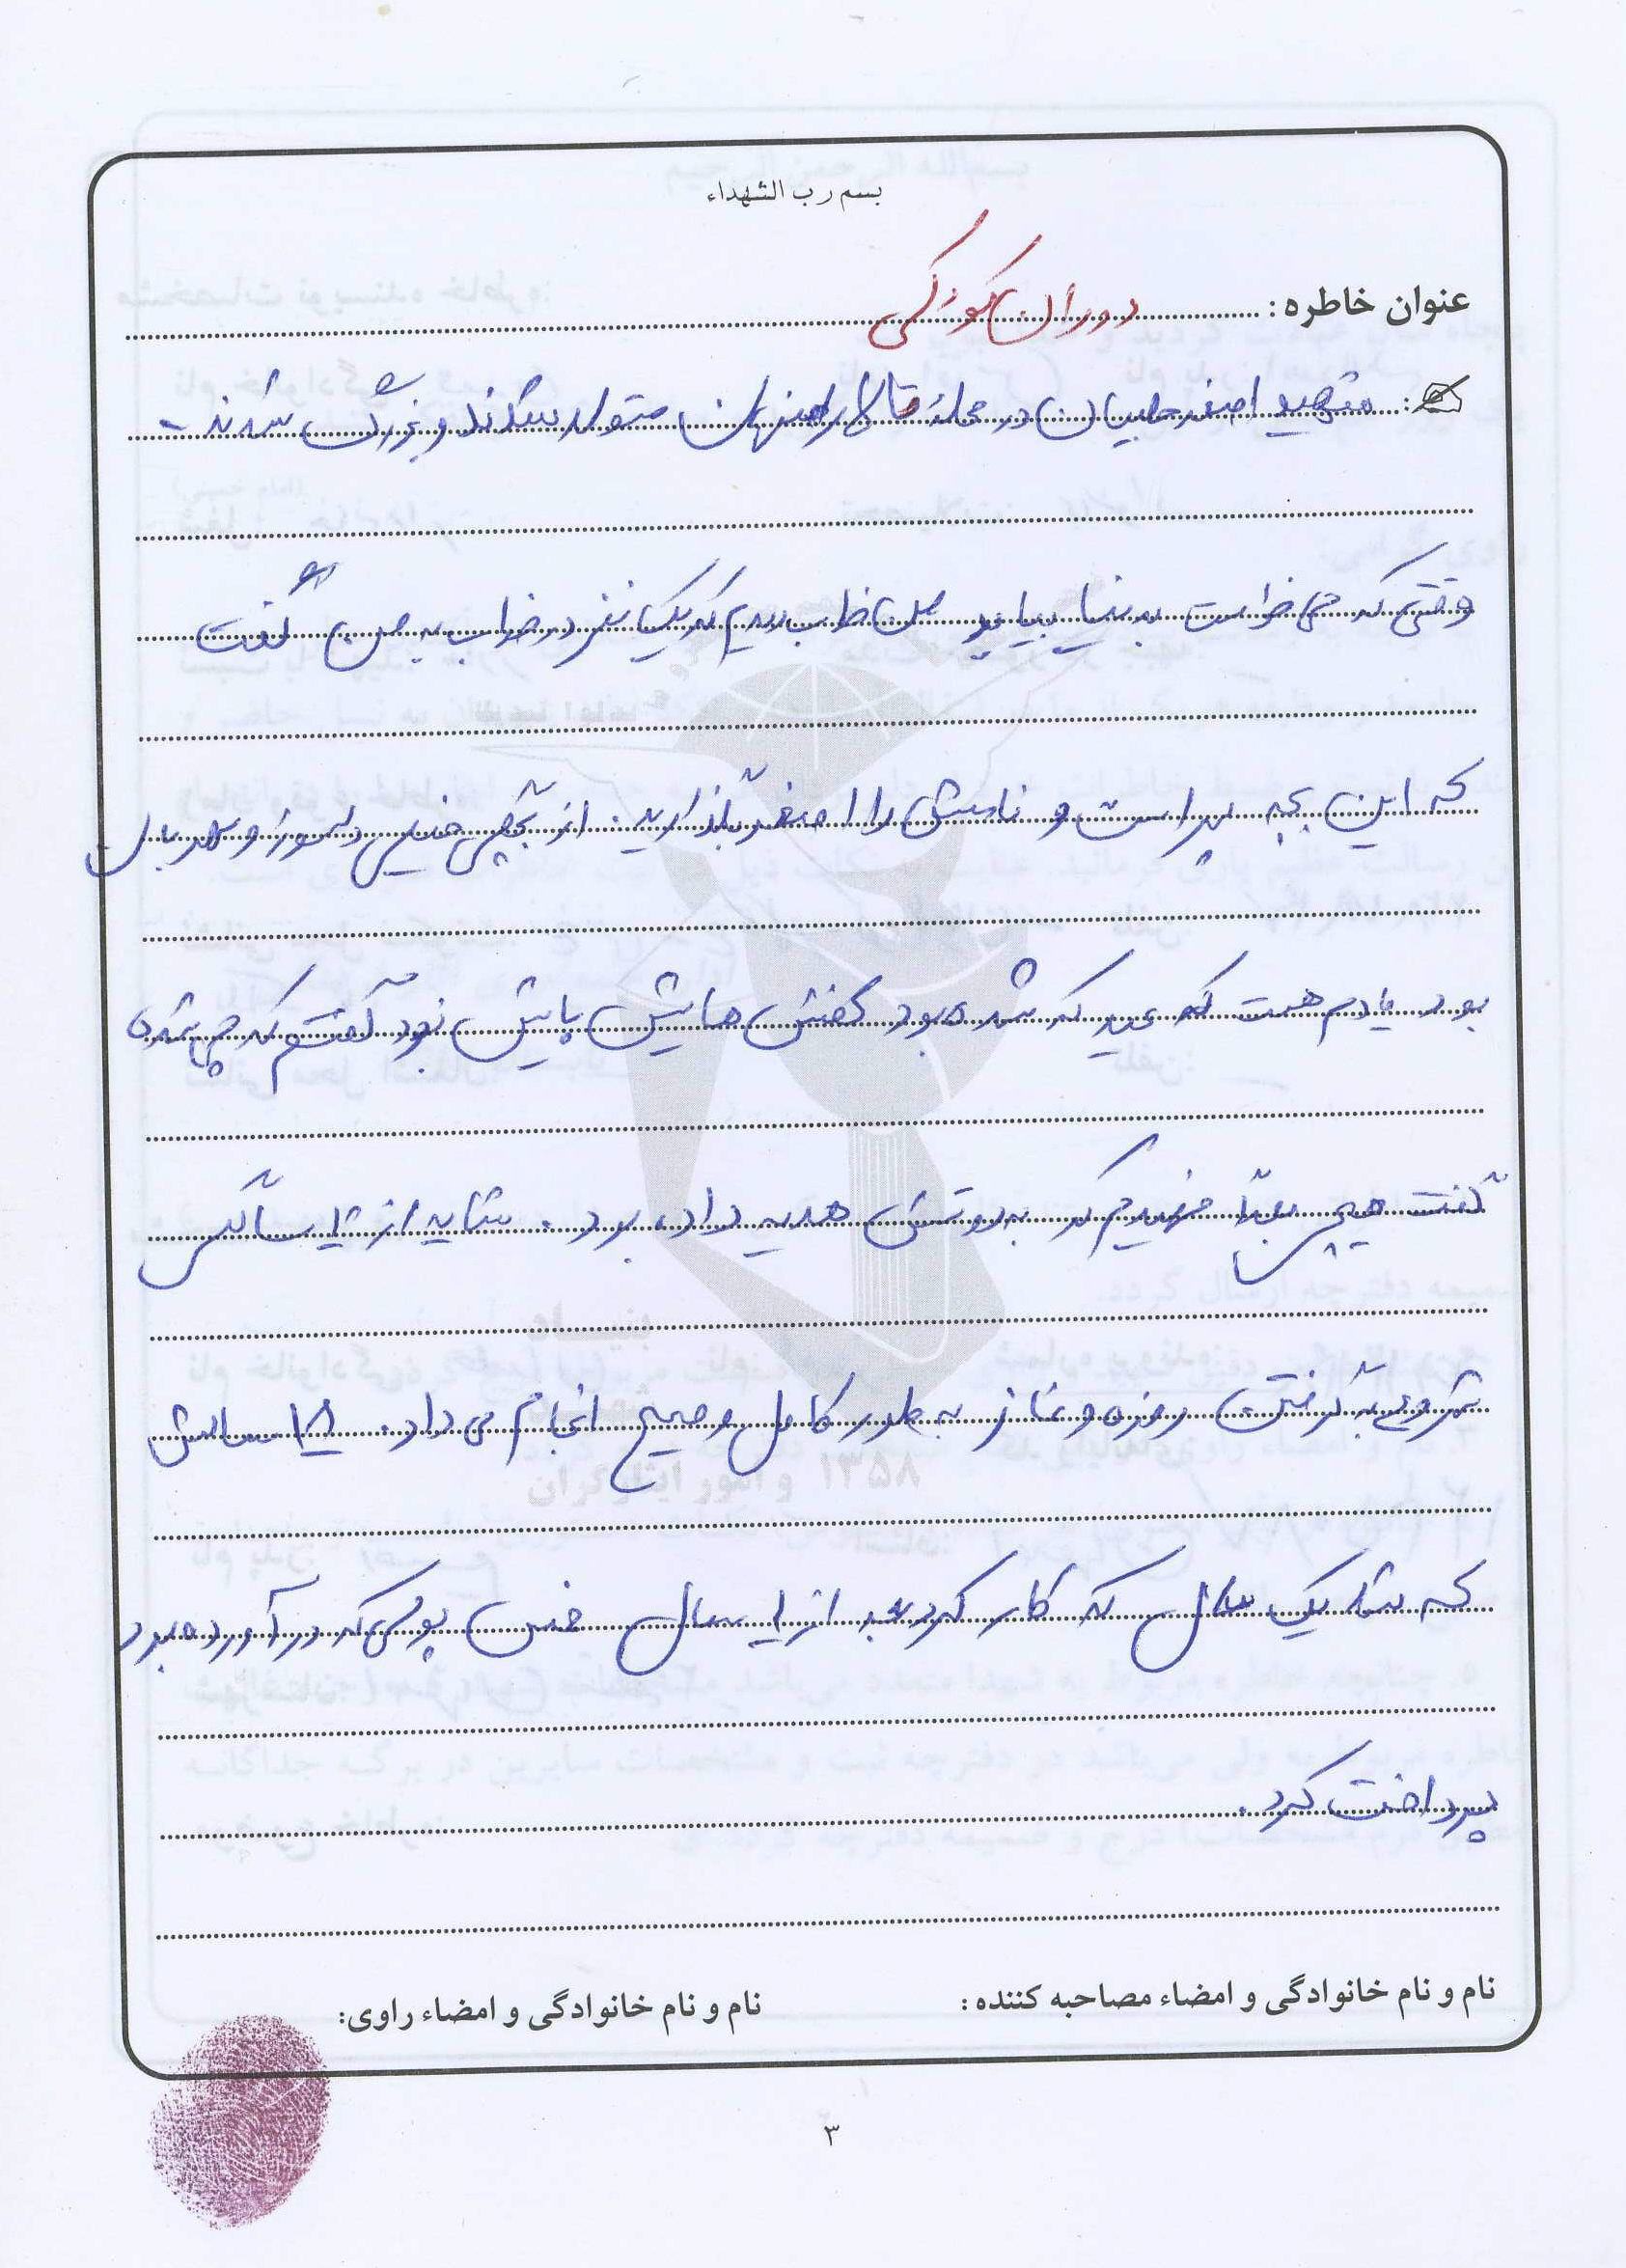 بسم رب الشهداء
عنوان خاطره: دوران کودکی
شهید اصغر حلبیان در محله اصفهان متولد شدند و بزرگ شدند -
وقتی که می خواست به دنیا بیاید من خاب دیدم که یک نفر در خواب به من گفت
که این بچه پسر است و نامش را اصغر بگذارید. از بچگی خیلی دلسوز و مهربان
بود. یادم هست که عید که شده بود کفش هایش پایش نبود گفتم که چی شده
گفت هیچی بعداً فهمیدم که به دوستش هدیه داده بود. شاید از سالگی
شروع به گرفتن روزه و نماز به طور کامل و صحیح انجام می داد. سالش
که شد یک سال که کار کرد بعد از سال خمس پولی که در آورده بود
پرداخت کرد.
نام و نام خانوادگی و امضاء مصاحبه کننده: نام و نام خانوادگی و امضاء راوی:
۳